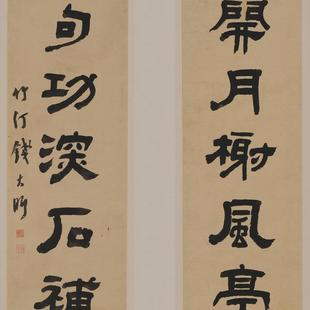 開月榭風亭
句功深石補
竹汀錢大昕